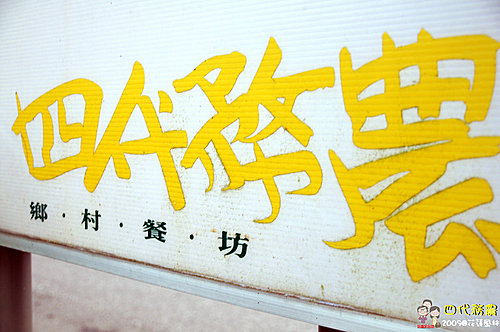 四代務農
鄉·村·餐·坊
四代務農
2009@花蓮鳳林